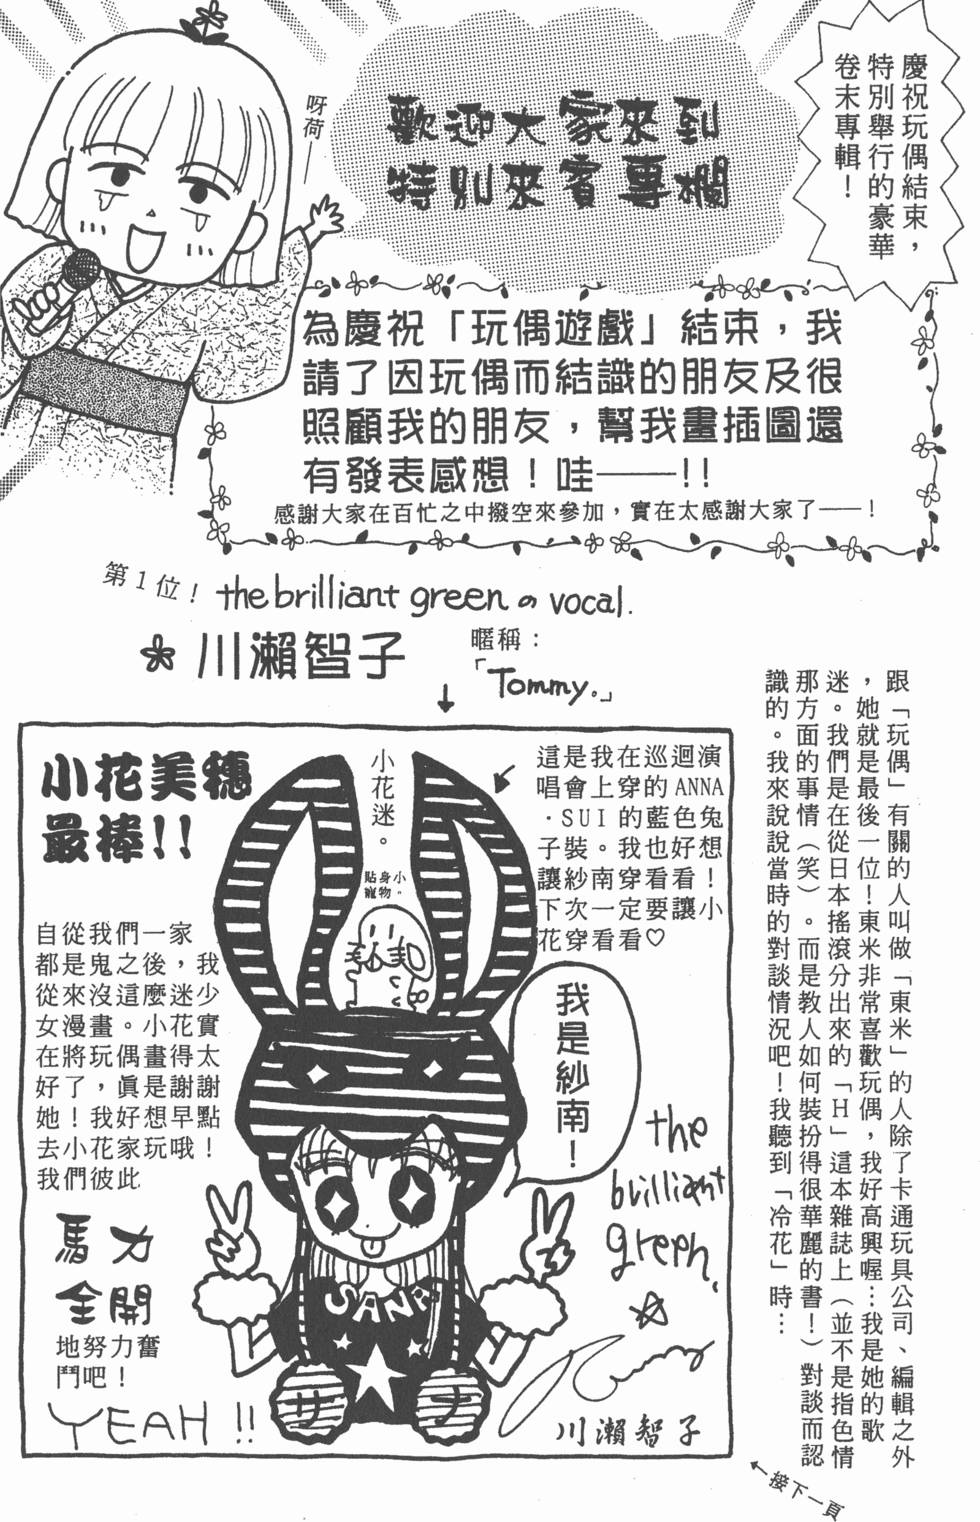 慶祝玩偶結束，
特別舉行的豪華
卷末專輯！
歡迎大家來到
特別來賓專欄
呀荷——
為慶祝「玩偶遊戲」結束，我
請了因玩偶而結識的朋友及很
照顧我的朋友，幫我畫插圖還
有發表感想！哇——!!
感謝大家在百忙之中撥空來參加，實在太感謝大家了——！
第1位！ the brilliant greenの vocal.
川瀨智子
暱稱：
「Tommy.」
跟「玩偶」有關的人叫做「東米」的人除了卡通玩具公司、編輯之外
，她就是最後一位！東米非常喜歡玩偶，我好高興喔…我是她的歌
迷。我們是在從日本搖滾分出來的「H」這本雜誌上（並不是指色情
那方面的事情（笑）。而是教人如何裝扮得很華麗的書！）對談而認
識的。我來說說當時的對談情況吧！我聽到「冷花」時…
這是我在巡迴演
唱會上穿的ANNA
．SUI的藍色兔
子裝。我也好想
讓紗南穿看看！
下次一定要讓小
花穿看看♡
小花迷。
貼身小
寵物。
小花美穗
最棒!!
自從我們一家
都是鬼之後，我
從來沒這麼迷少
女漫畫。小花實
在將玩偶畫得太
好了，眞是謝謝
她！我好想早點
去小花家玩哦！
我們彼此
馬力
全開
地努力奮
鬥吧！
YEAH!!
我是紗南！
SANA
サ ナ
the
brilliant
green.
川瀨智子
←接下一頁